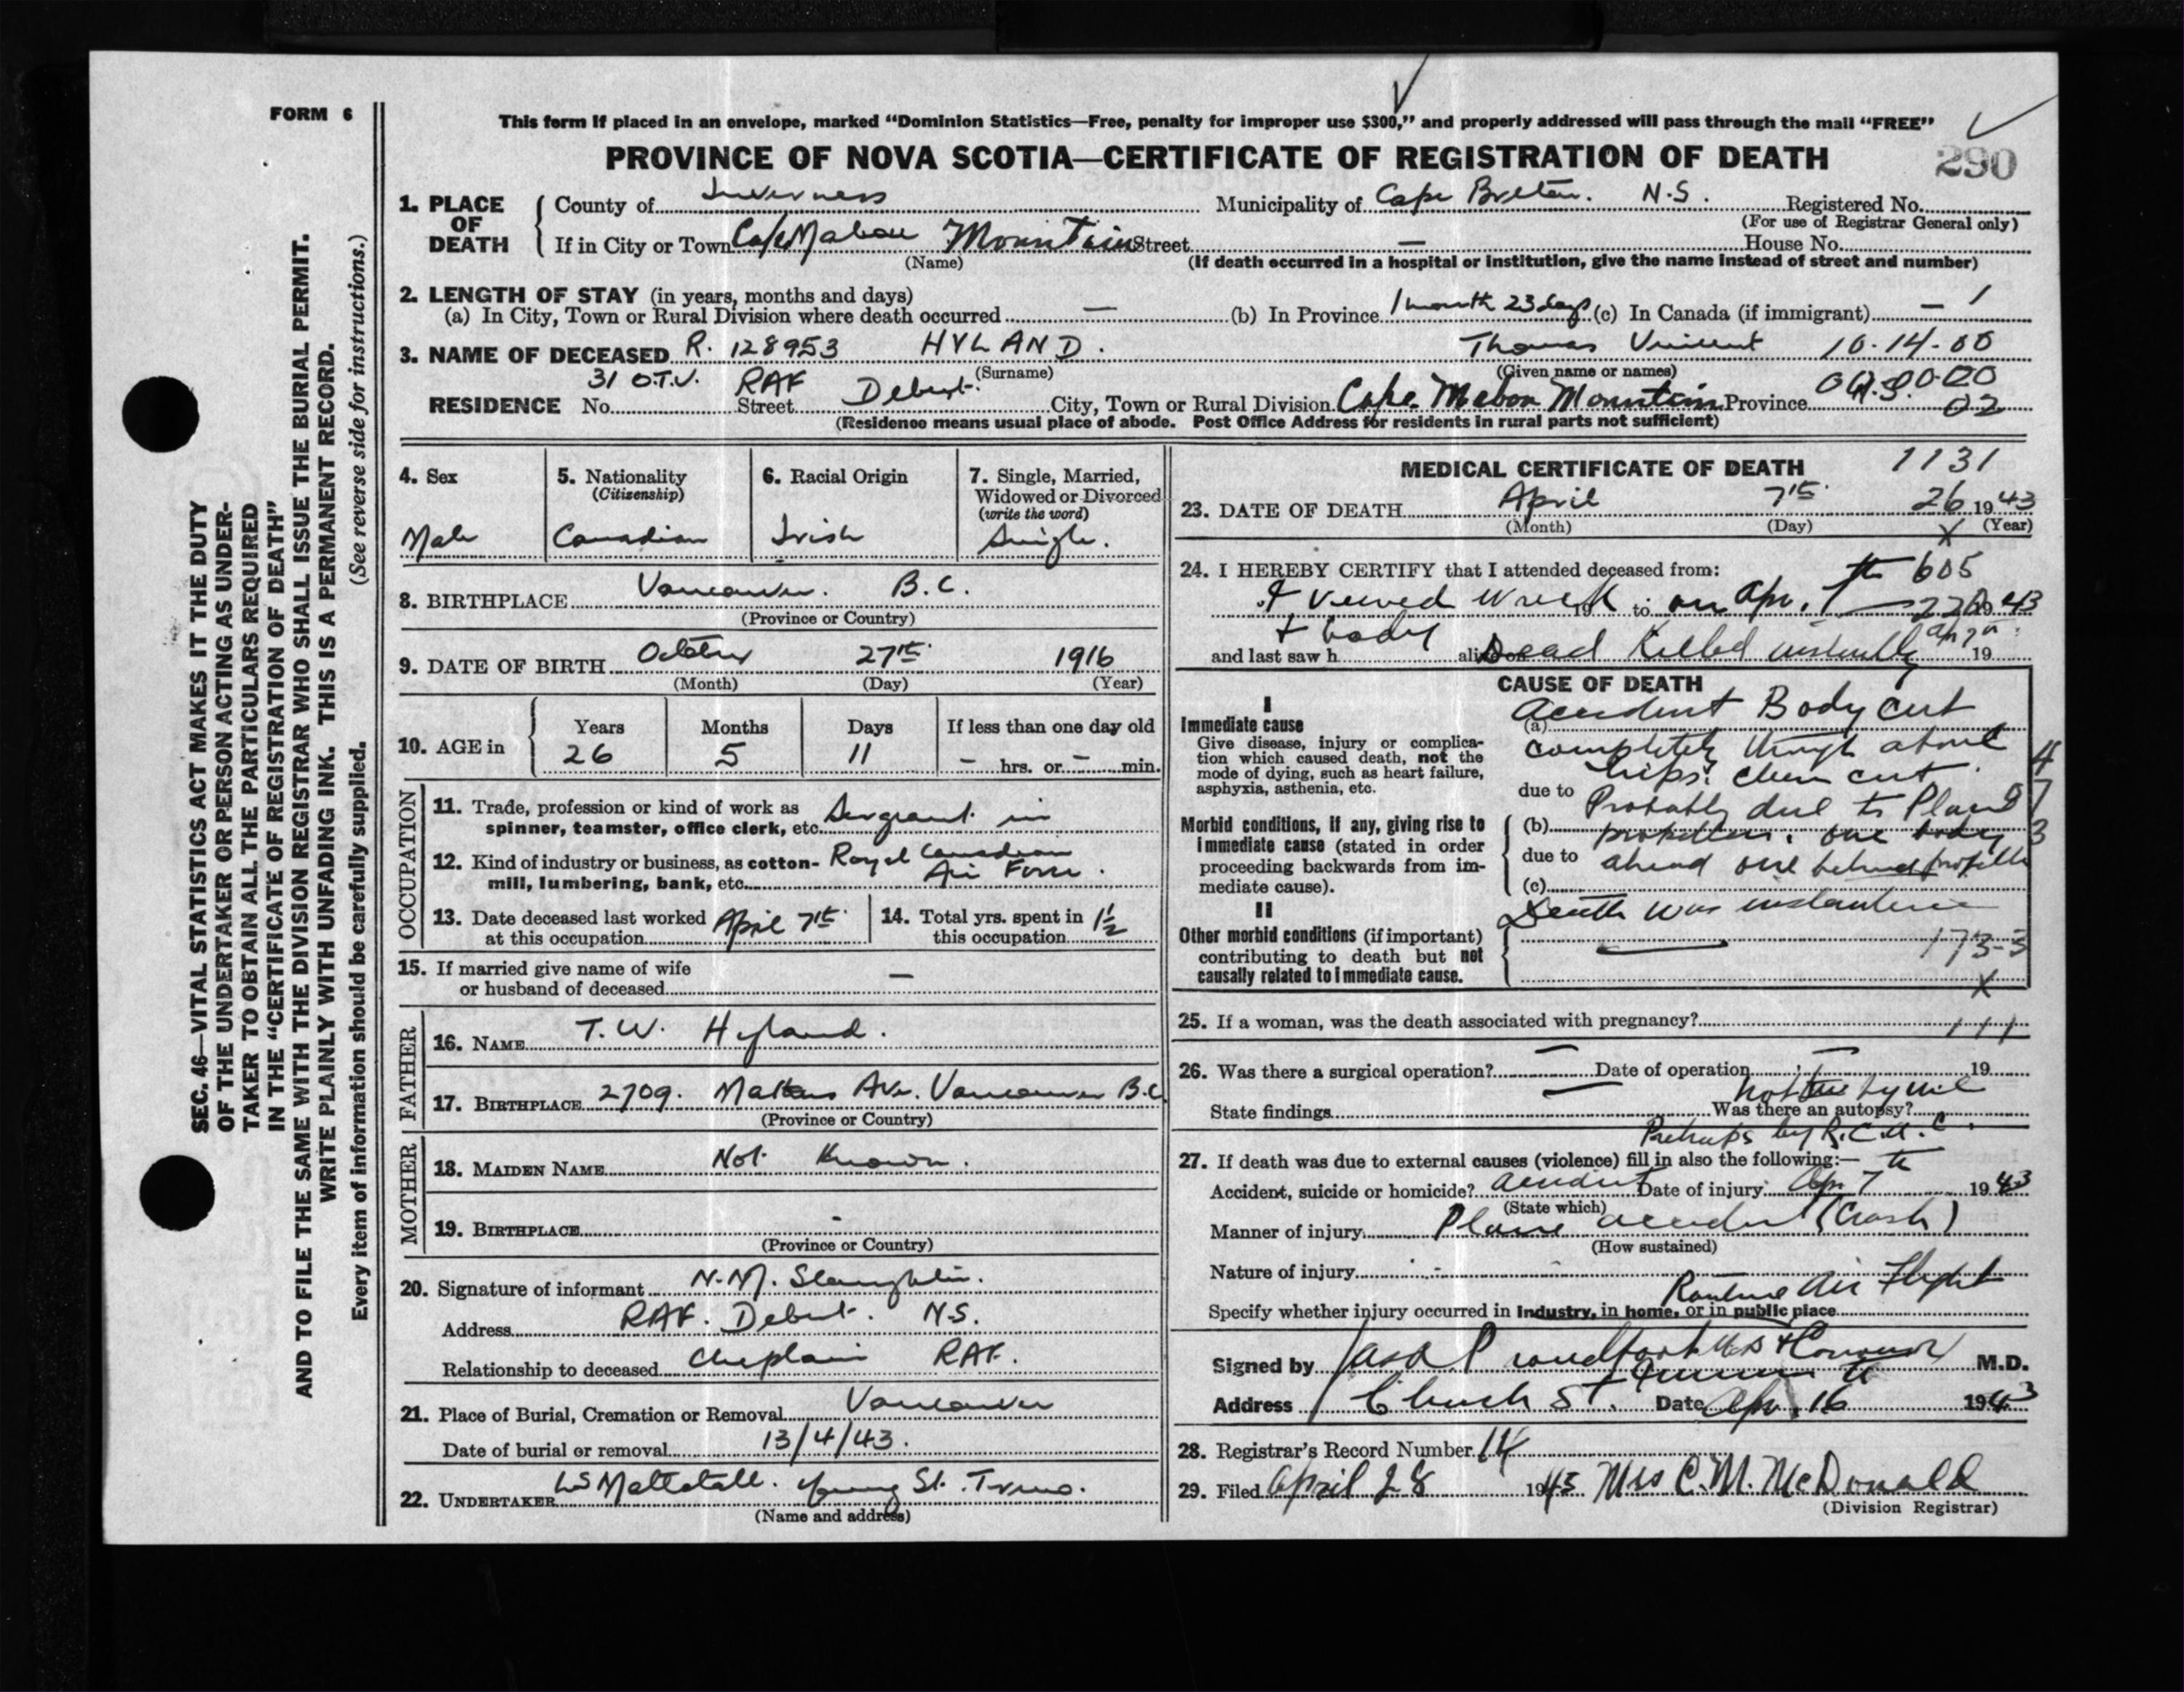 FORM 6
This form if placed in an envelope, marked "Dominion Statistics—Free, penalty for improper use $300," and properly addressed will pass through the mail "FREE"
PROVINCE OF NOVA SCOTIA—CERTIFICATE OF REGISTRATION OF DEATH
290
1. PLACE OF DEATH
County of Inverness Municipality of Cape Breton. N.S. Registered No.
(For use of Registrar General only)
If in City or Town Cape Mabou Mountain Street — House No.
(Name) (If death occurred in a hospital or institution, give the name instead of street and number)
2. LENGTH OF STAY (in years, months and days)
(a) In City, Town or Rural Division where death occurred — (b) In Province 1 month 23 days (c) In Canada (if immigrant) — 1
3. NAME OF DECEASED R. 128953 HYLAND. Thomas Vincent 10-14-00
(Surname) (Given name or names)
RESIDENCE No. 31 O.T.U. Street RAF Debert. City, Town or Rural Division Cape Mabou Mountain Province N.S. 02
(Residence means usual place of abode. Post Office Address for residents in rural parts not sufficient)
4. Sex
Male
5. Nationality
(Citizenship)
Canadian
6. Racial Origin
Irish
7. Single, Married,
Widowed or Divorced
(write the word)
Single.
8. BIRTHPLACE Vancouver. B.C.
(Province or Country)
9. DATE OF BIRTH October 27th 1916
(Month) (Day) (Year)
10. AGE in
Years Months Days If less than one day old
26 5 11 - hrs. or - min.
OCCUPATION
11. Trade, profession or kind of work as
spinner, teamster, office clerk, etc. Sergeant in
12. Kind of industry or business, as cotton-
mill, lumbering, bank, etc. Royal Canadian Air Force.
13. Date deceased last worked
at this occupation April 7th
14. Total yrs. spent in
this occupation 1½
15. If married give name of wife
or husband of deceased —
FATHER
16. NAME T. W. Hyland.
17. BIRTHPLACE 2709. Ave. Vancouver B.C.
(Province or Country)
MOTHER
18. MAIDEN NAME Not Known.
19. BIRTHPLACE -
(Province or Country)
20. Signature of informant N. M. Slaughter.
Address RAF. Debert. N.S.
Relationship to deceased Chaplain RAF.
21. Place of Burial, Cremation or Removal Vancouver
Date of burial or removal 13/4/43.
22. UNDERTAKER Mattatall. Young St. Truro.
(Name and address)
MEDICAL CERTIFICATE OF DEATH 1131
23. DATE OF DEATH April 7th 26 1943
(Month) (Day) (Year)
X
24. I HEREBY CERTIFY that I attended deceased from: 605
I viewed wreck 19 to on Apr. 7th 1943
+ body
and last saw h alive on Dead Killed instantly Ap 7th 19
CAUSE OF DEATH
I
Immediate cause
Give disease, injury or complica-
tion which caused death, not the
mode of dying, such as heart failure,
asphyxia, asthenia, etc.
(a) Accident Body cut
completely through about
hips. clean cut.
due to Probably due to Plane
Morbid conditions, if any, giving rise to
immediate cause (stated in order
proceeding backwards from im-
mediate cause).
(b) propellers. one body
due to ahead one behind propeller
(c)
473
II
Other morbid conditions (if important)
contributing to death but not
causally related to immediate cause.
Death was
— 173-3
X
25. If a woman, was the death associated with pregnancy? 111
26. Was there a surgical operation? — Date of operation — 19
State findings — Was there an autopsy? not by me
Perhaps by
27. If death was due to external causes (violence) fill in also the following:—
Accident, suicide or homicide? Accident Date of injury Apr 7th 1943
(State which)
Manner of injury Plane accident (Crash)
(How sustained)
Nature of injury - Routine Air Flight
Specify whether injury occurred in industry, in home, or in public place
Signed by Proudfoot M.D.
Address Church St. Date Apr. 16 1943
28. Registrar's Record Number 14
29. Filed April 28 1943 Mrs C. M. McDonald
(Division Registrar)
SEC. 46—VITAL STATISTICS ACT MAKES IT THE DUTY
OF THE UNDERTAKER OR PERSON ACTING AS UNDER-
TAKER TO OBTAIN ALL THE PARTICULARS REQUIRED
IN THE "CERTIFICATE OF REGISTRATION OF DEATH"
AND TO FILE THE SAME WITH THE DIVISION REGISTRAR WHO SHALL ISSUE THE BURIAL PERMIT.
WRITE PLAINLY WITH UNFADING INK. THIS IS A PERMANENT RECORD.
Every item of information should be carefully supplied. (See reverse side for instructions.)